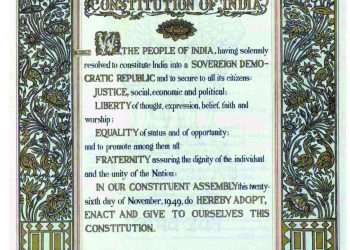 CONSTITUTION OF INDIA
WE, THE PEOPLE OF INDIA, having solemnly
resolved to constitute India into a SOVEREIGN DEMO-
CRATIC REPUBLIC and to secure to all its citizens:
JUSTICE, social, economic and political;
LIBERTY of thought, expression, belief, faith and
worship;
EQUALITY of status and of opportunity;
and to promote among them all
FRATERNITY assuring the dignity of the individual
and the unity of the Nation;
IN OUR CONSTITUENT ASSEMBLY this twenty-
sixth day of November, 1949, do HEREBY ADOPT,
ENACT AND GIVE TO OURSELVES THIS
CONSTITUTION.